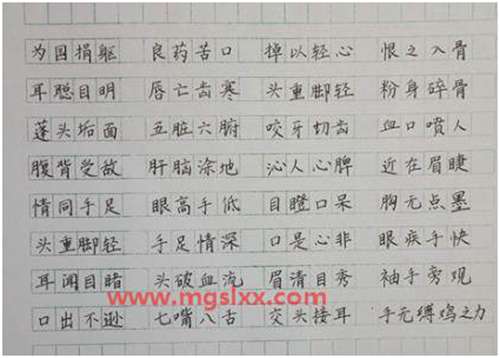 为国捐躯 良药苦口 掉以轻心 恨之入骨
耳聪目明 唇亡齿寒 头重脚轻 粉身碎骨
蓬头垢面 五脏六腑 咬牙切齿 血口喷人
腹背受敌 肝脑涂地 沁人心脾 近在眉睫
情同手足 眼高手低 目瞪口呆 胸无点墨
头重脚轻 手足情深 口是心非 眼疾手快
耳濡目睹 头破血流 眉清目秀 袖手旁观
www.mgslxx.com
口出不逊 七嘴八舌 交头接耳 手无缚鸡之力